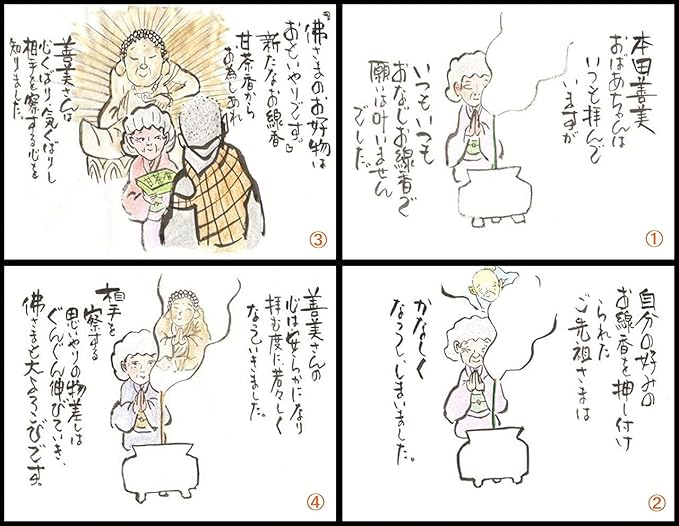 本田善美
おばあちゃんは
いつも拝んで
いますが
いつもいつも
おなじお線香で
願いは叶いません
でした。
①
自分の好みの
お線香を押し付け
られた
ご先祖さまは
かなしく
なってしまいました。
②
『佛さまのお好物は
おもいやりです。』
新たなお線香
甘茶香から
お為しあれ
甘茶香
善美さんは
心くばり気くばりし
相手を察する心を
知りました。
③
善美さんの
心は安らかになり
拝む度に若々しく
なっていきました。
相手を
察する
思いやりの物差しは
ぐんぐん伸びていき、
佛さまも大よろこびです。
④